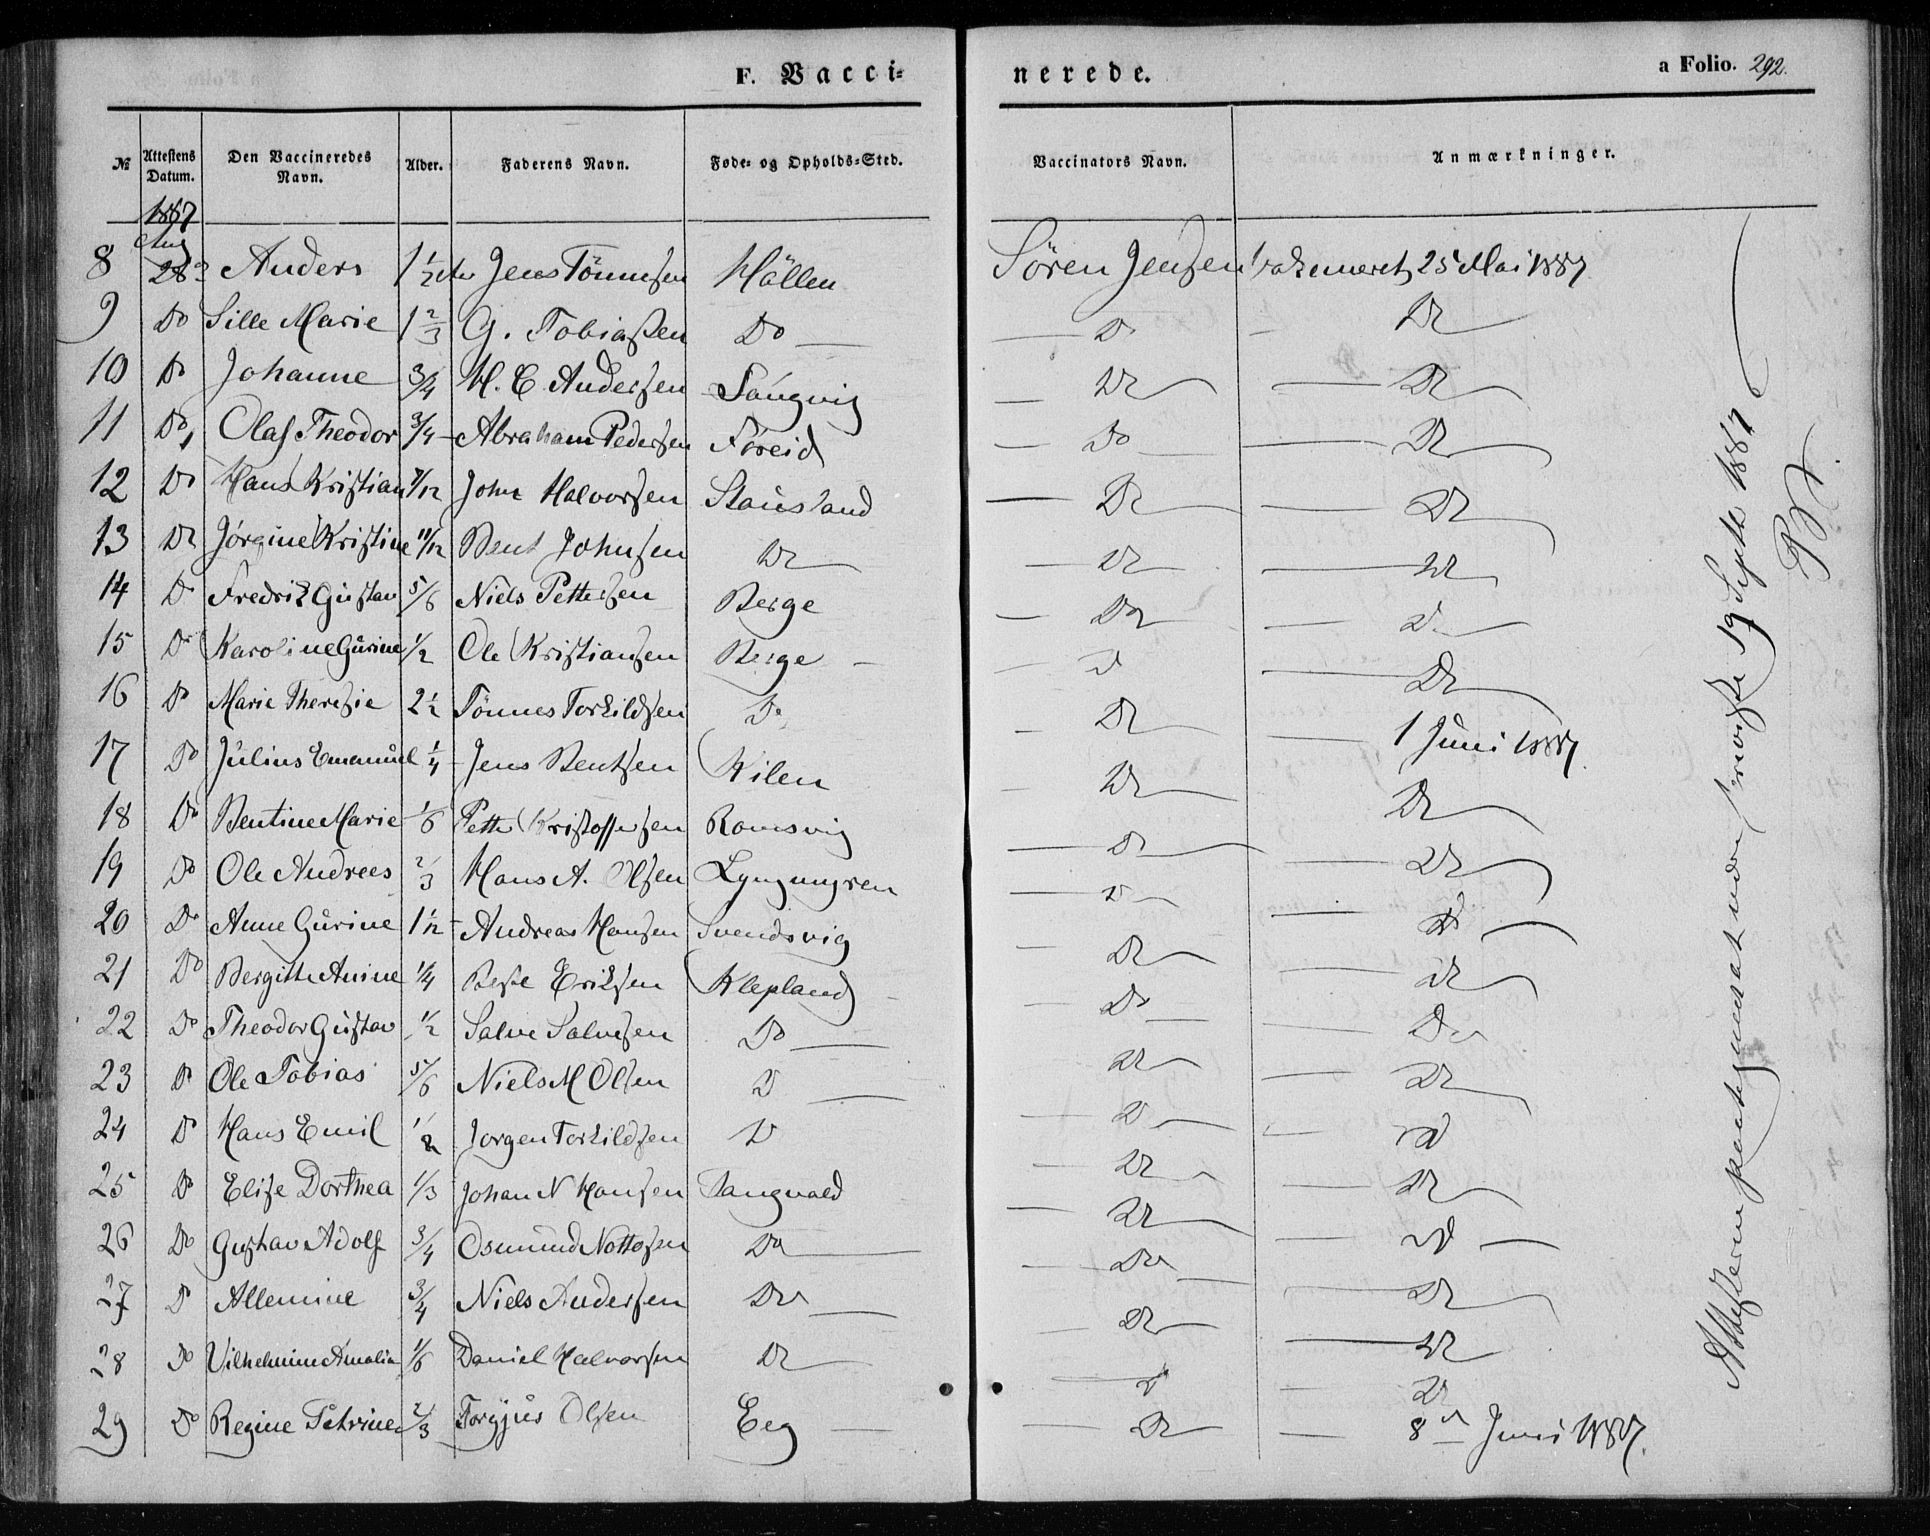 F. Vacci=
nerede.
a Folio. 292.
№ Attestens Datum. Den Vaccineredes Navn. Alder. Faderens Navn. Føde= og Opholds=Sted. Vaccinators Navn. Anmærkninger.
1887
8 Aug 28 Anders 1 1/2 Jens Tönnesen Hällen Sören Jensen 25 Mai 1887
9 Do Sille Marie 1 2/3 G. Tobiaßen Do Do Do
10 Do Johanne 3/4 H. C. Andersen Sångvig Do Do
11 Do Olaf Theodor 3/4 Abraham Pedersen Föreid Do Do
12 Do Hans Kristian 7/12 John Halvorsen Stausland Do Do
13 Do Jørgine Kristine 11/12 Bent Johnsen Do Do Do
14 Do Fredrik Gustav 5/6 Niels Pettersen Berge Do Do
15 Do Karoline Gurine 1/2 Ole Kristiansen Berge Do Do
16 Do Marie Theresie 2 1/2 Tönnes Torkildsen Do Do 1 Juni 1887
17 Do Julius Emanuel 1/4 Jens Bentsen Kilen Do Do
18 Do Bentine Marie 1/6 Petter Kristoffersen Romsvig Do Do
19 Do Ole Andrees 2/3 Hans A. Olsen Lyngmyren Do Do
20 Do Anne Gurine 1 1/2 Andreas Hansen Svendsvig Do Do
21 Do Bergithe Anine 1/4 Berge Eriksen Klepland Do Do
22 Do Theodor Gustav 1/2 Salve Salvesen Do Do Do
23 Do Ole Tobias 5/6 Niels M Olsen Do Do Do
24 Do Hans Emil 1/2 Jorgen Torkildsen Do Do Do
25 Do Elise Dorthea 1/3 Johan N Hansen Tangvald Do Do
26 Do Gustav Adolf 3/4 Osmund Nottosen Do Do Do
27 Do Allemine 3/4 Niels Andersen Do Do Do
28 Do Vilhelmine Amalia 1/6 Daniel Halvorsen Do Do Do
29 Do Regine Petrine 2/3 Torgjus Olsen Eeg Do 8de Juni 1887.
Attestern 19 Septb 1887